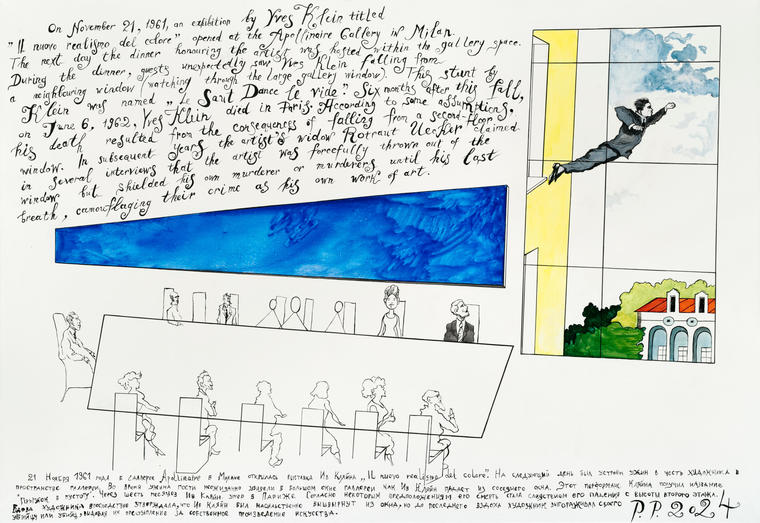 On November 21, 1961, an exhibition by Yves Klein titled
"Il nuovo realismo del colore" opened at the Apollinaire Gallery in Milan.
The next day the dinner honouring the artist was hosted within the gallery space.
During the dinner, guests unexpectedly saw Yves Klein falling from
a neighbouring window (watching through the large gallery window). This stunt by
Klein was named "Le Saut Dance le vide". Six months after this fall,
on June 6, 1962, Yves Klein died in Paris. According to some assumptions,
his death resulted from the consequences of falling from a second-floor
window. In subsequent years the artist's widow Rotraut Uecker claimed
in several interviews that the artist was forcefully thrown out of the
window but shielded his own murderer or murderers until his last
breath, camouflaging their crime as his own work of art.
21 Ноября 1961 года в галерее Apollinaire в Милане открылась выставка Ив Кляйна "Il nuovo realismo del colore". На следующий день был устроен ужин в честь художника в
пространстве галлереи. Во время ужина гости неожиданно увидели в большом окне галлереи как Ив Кляйн падает из соседнего окна. Этот перформанс Кляйна получил название
"Прыжок в пустоту". Через шесть месяцев Ив Кляйн умер в Париже. Согласно некоторым предположениям его смерть стала следствием его падения с высоты второго этажа.
Вдова художника впоследствие утверждала, что Ив Кляйн был насильственно вышвырнут из окна, но до последнего вздоха художник выгораживал своего
убийцу или убийц, выдавая их преступление за собственное произведение искусства.
P.P.2024